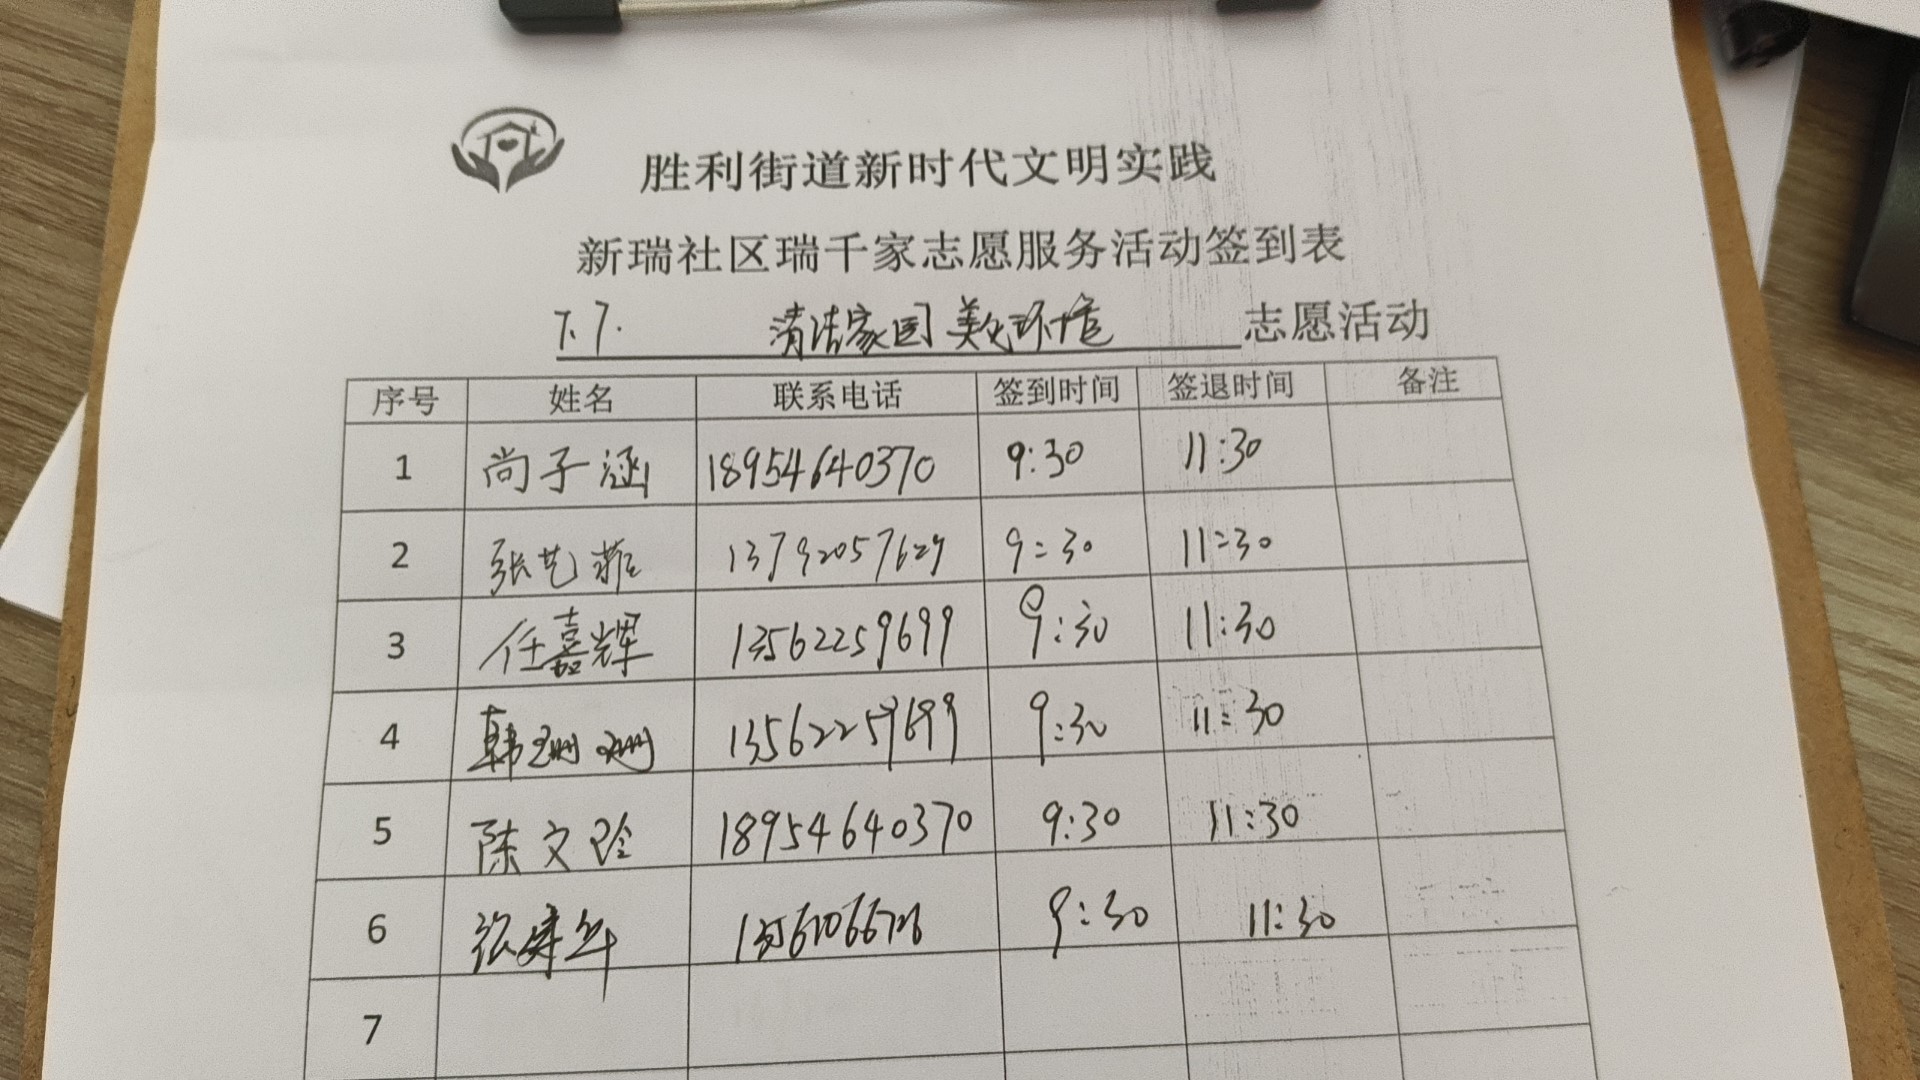 胜利街道新时代文明实践
新瑞社区瑞千家志愿服务活动签到表
7.7. 清洁家园 美化环境 志愿活动
序号 姓名 联系电话 签到时间 签退时间 备注
1 尚子涵 18954640370 9:30 11:30
2 张艺菲 13792057629 9:30 11:30
3 任嘉辉 13562259699 9:30 11:30
4 韩珊珊 13562259699 9:30 11:30
5 陈文玲 18954640370 9:30 11:30
6 张 9:30 11:30
7